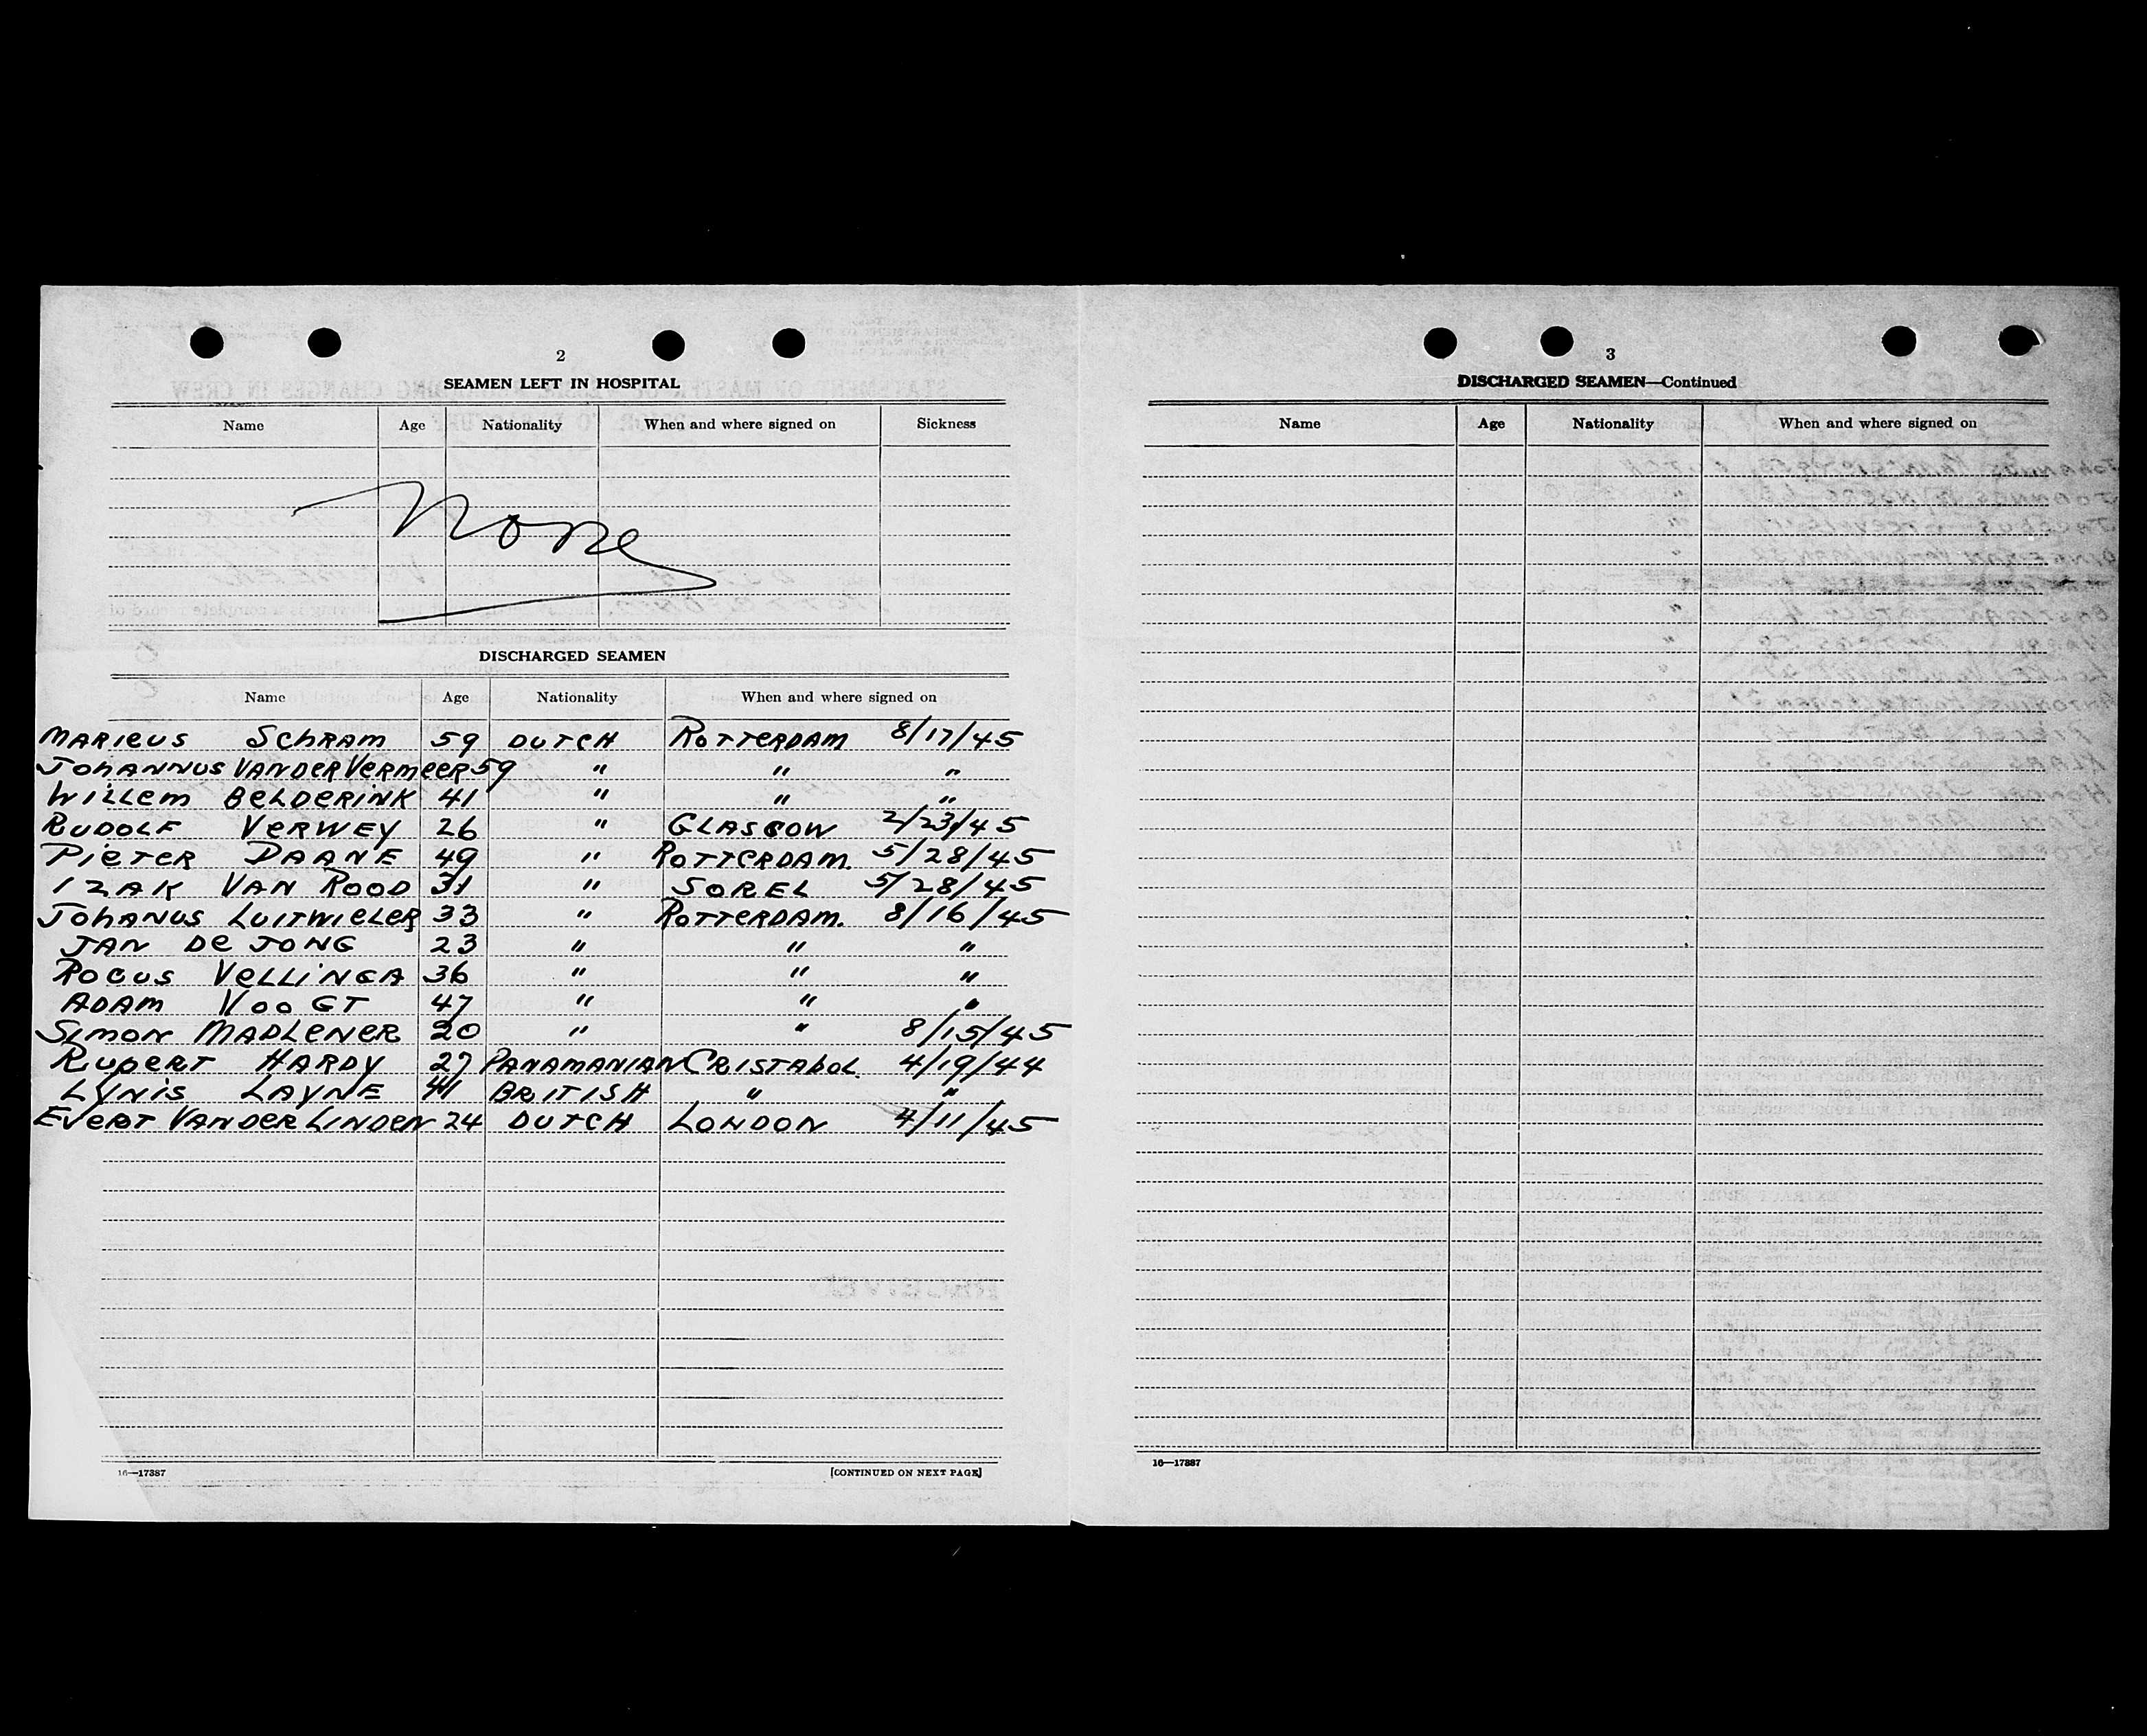 2
SEAMEN LEFT IN HOSPITAL
Name Age Nationality When and where signed on Sickness
None
DISCHARGED SEAMEN
Name Age Nationality When and where signed on
MARIEUS SCHRAM 59 DUTCH ROTTERDAM 8/17/45
JOHANNUS VANDERVERMEER 59 " " "
WILLEM BELDERINK 41 " " "
RUDOLF VERWEY 26 " GLASGOW 2/23/45
PIETER DAANE 49 " ROTTERDAM. 5/28/45
IZAK VAN ROOD 31 " SOREL 5/28/45
JOHANUS LUITWIELER 33 " ROTTERDAM. 8/16/45
JAN DE JONG 23 " " "
ROCUS VELLINGA 36 " " "
ADAM VOOGT 47 " " "
SIMON MADLENER 20 " " 8/15/45
RUPERT HARDY 27 PANAMANIAN CRISTABOL. 4/19/44
LYNIS LAYNE 41 BRITISH " "
EVERT VANDER LINDEN 24 DUTCH LONDON 4/11/45
16—17387
[CONTINUED ON NEXT PAGE]
3
DISCHARGED SEAMEN—Continued
Name Age Nationality When and where signed on
16—17387